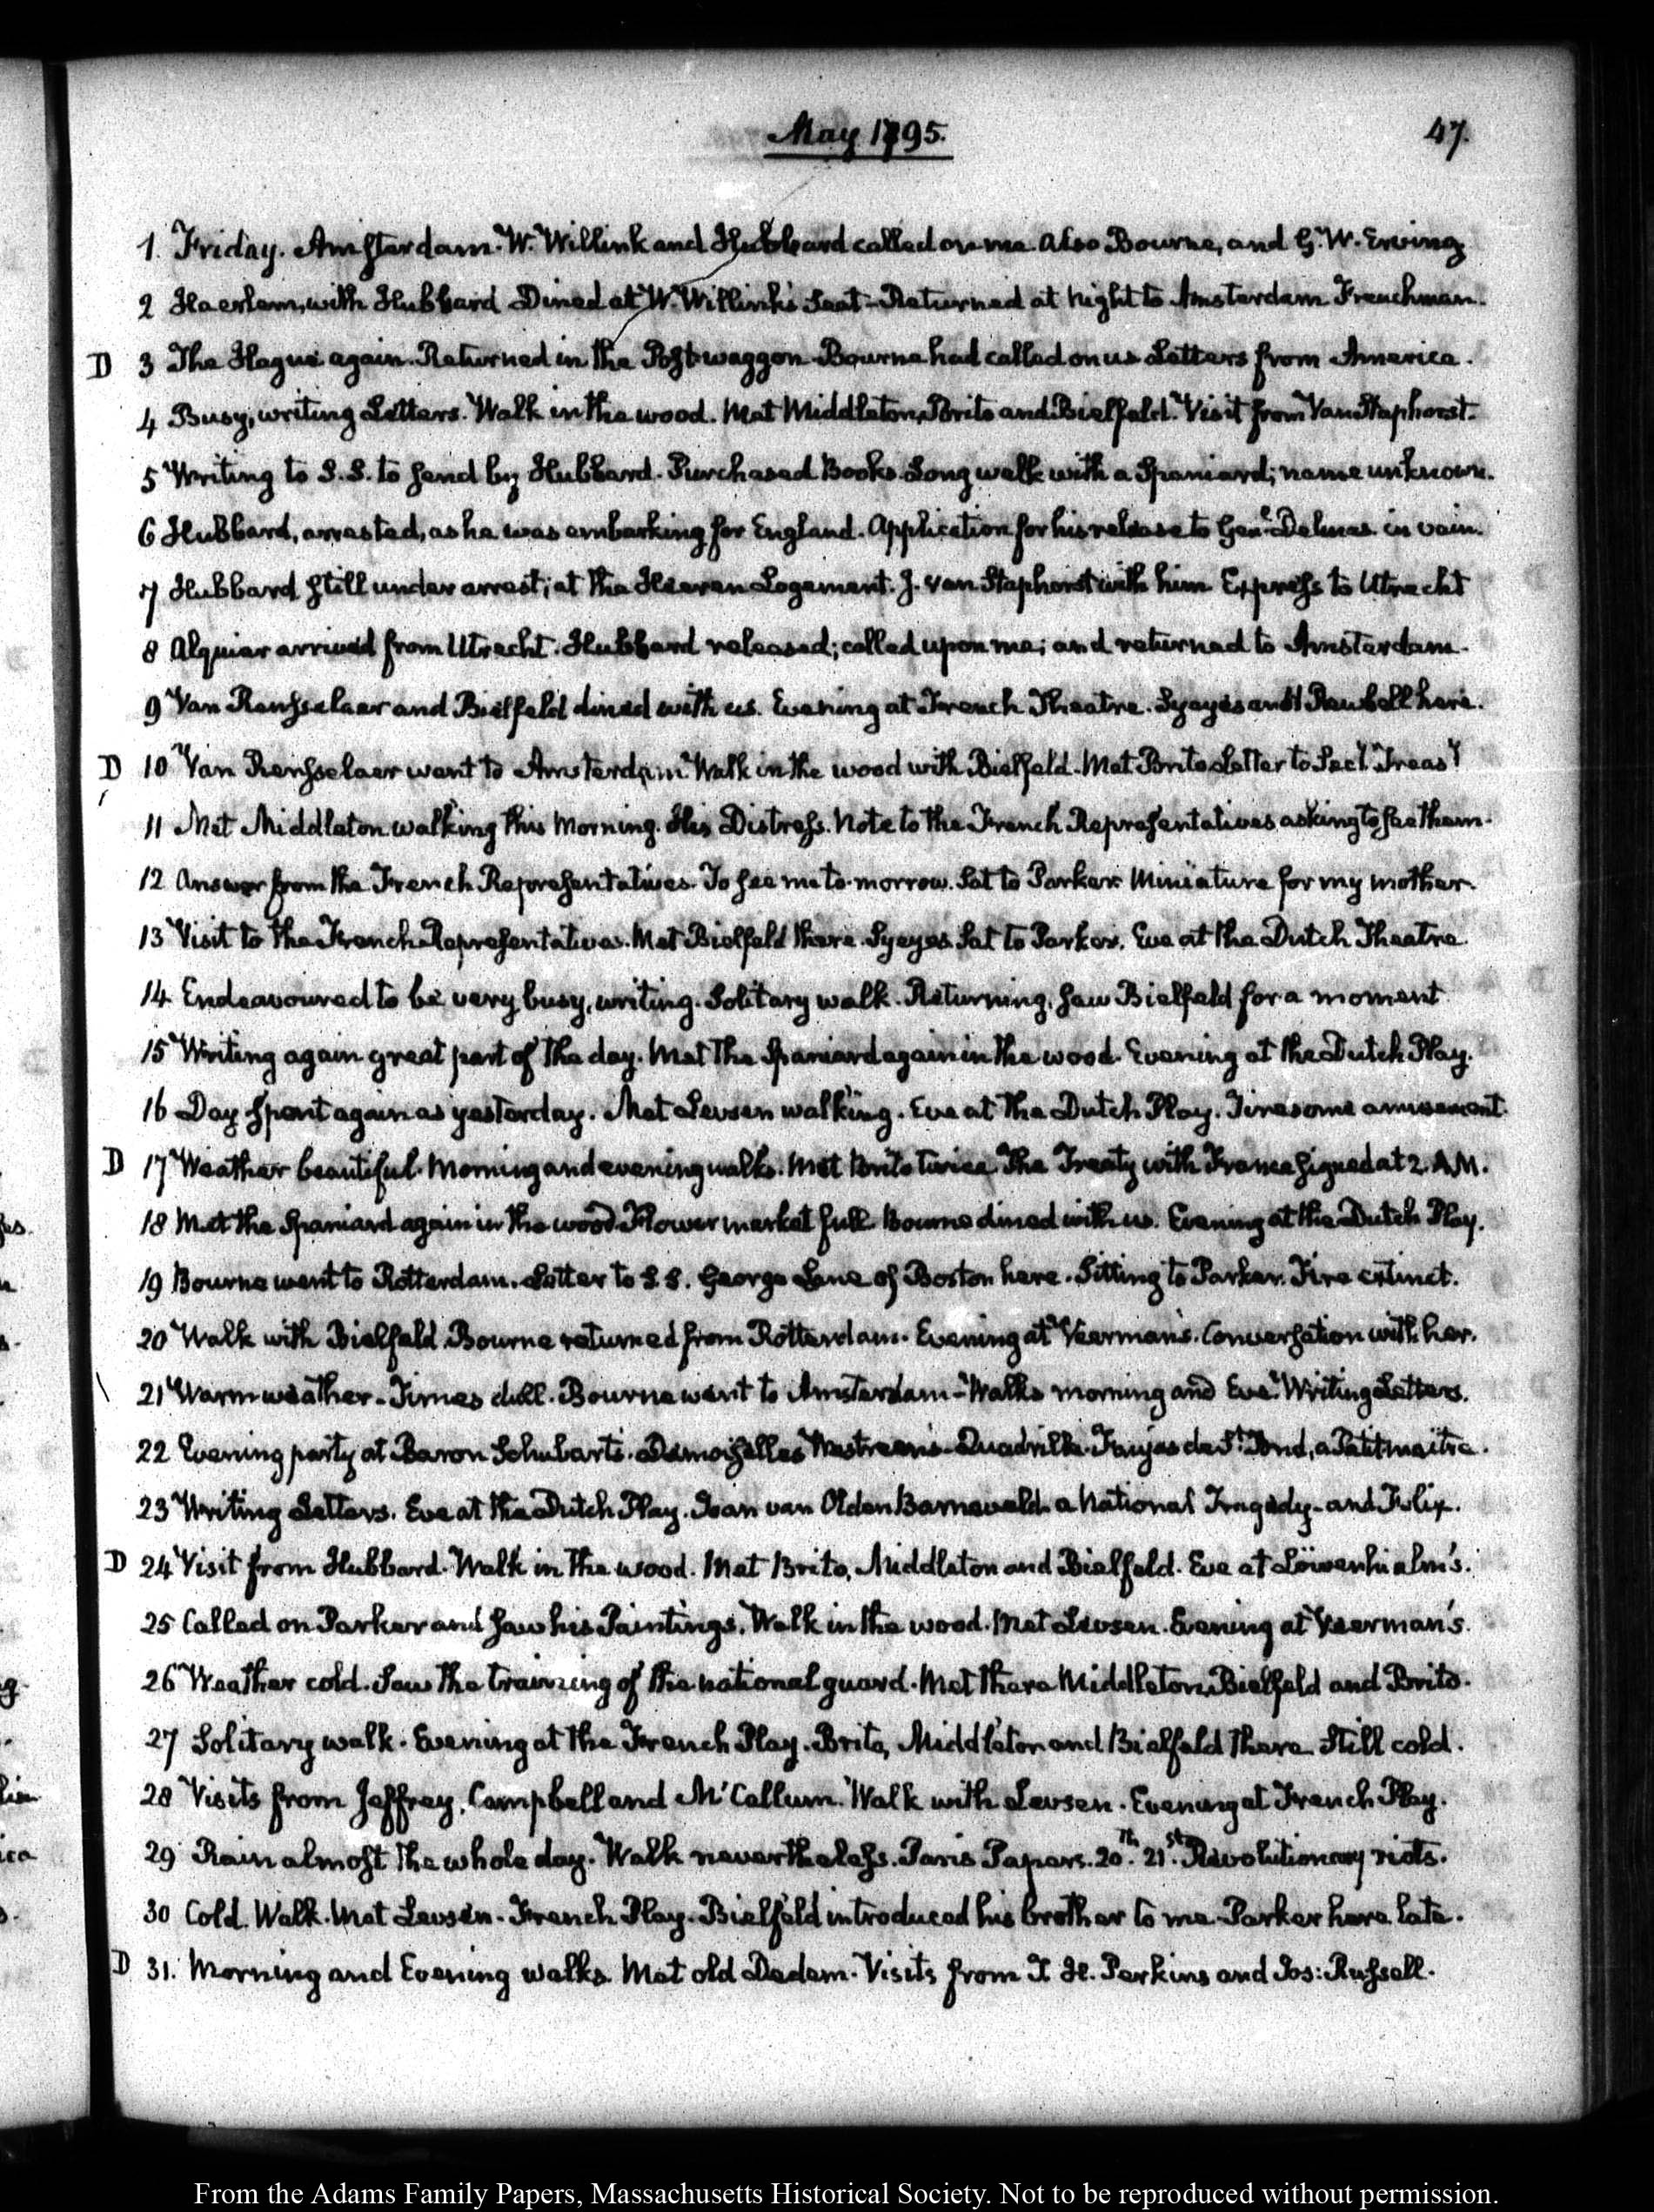 May 1795.
47.
1. Friday. Amsterdam. W. Willink and Hubbard called on me. Also Bourne, and G. W. Erving.
2 Haerlem, with Hubbard Dined at W. Willink's Seat - Returned at night to Amsterdam Frenchman.
D 3 The Hague again. Returned in the Post-waggon. Bourne had called on us Letters from America.
4 Busy, writing Letters. Walk in the wood. Met Middleton, Brito and Bielfeld. Visit from Van Staphorst.
5 Writing to S.S. to send by Hubbard. Purchased Books. Long walk with a Spaniard; name unknown.
6 Hubbard, arrested, as he was embarking for England. Application for his release to Genl. Delmas in vain.
7 Hubbard still under arrest; at the Heeren Logement. J. van Staphorst with him Express to Utrecht
8 Alquier arrived from Utrecht. Hubbard released; called upon me; and returned to Amsterdam.
9 Van Rensselaer and Bielfeld dined with us. Evening at French Theatre. Syeyes and Rewbell here.
D 10 Van Rensselaer went to Amsterdam. Walk in the wood with Bielfeld. Met Brito. Letter to Secy. Treasy
11 Met Middleton walking this Morning. His Distress. Note to the French Representatives asking to see them.
12 Answer from the French Representatives. To see me to-morrow. Sat to Parker. Miniature for my mother.
13 Visit to the French Representatives. Met Bielfeld there. Syeyes. Sat to Parker. Eve at the Dutch Theatre.
14 Endeavoured to be very busy, writing. Solitary walk. Returning, saw Bielfeld for a moment
15 Writing again great part of the day. Met the Spaniard again in the wood. Evening at the Dutch Play.
16 Day spent again as yesterday. Met Levsen walking. Eve at the Dutch Play. Tiresome amusement.
D 17 Weather beautiful. Morning and evening walks. Met Brito twice. The Treaty with France signed at 2. A.M.
18 Met the Spaniard again in the wood. Flower market full. Bourne dined with us. Evening at the Dutch Play.
19 Bourne went to Rotterdam. Letter to S.S. George Lane of Boston here. Sitting to Parker. Fire extinct.
20 Walk with Bielfeld. Bourne returned from Rotterdam. Evening at Veerman's. Conversation with her.
21 Warm weather - Times dull. Bourne went to Amsterdam - Walks morning and Eve. Writing Letters.
22 Evening party at Baron Schubart's. Demoiselles Westreen's - Quadrille. Faujas de St. Fond, a Petit maître.
23 Writing Letters. Eve at the Dutch Play. Joan van Olden Barneveld a National Tragedy - and Felix.
D 24 Visit from Hubbard. Walk in the wood. Met Brito, Middleton and Bielfeld. Eve at Löwenhielm's.
25 Called on Parker and saw his Paintings. Walk in the wood. Met Levsen. Evening at Veerman's.
26 Weather cold. Saw the training of the national guard. Met there Middleton, Bielfeld and Brito.
27 Solitary walk. Evening at the French Play. Brito, Middleton and Bielfeld there. Still cold.
28 Visits from Jeffrey, Campbell and McCallum. Walk with Levsen. Evening at French Play.
29 Rain almost the whole day. Walk nevertheless. Paris Papers. 20th. 21st. Revolutionary riots.
30 Cold. Walk. Met Levsen. French Play. Bielfeld introduced his brother to me. Parker here late.
D 31. Morning and Evening walks. Met old Dedem. Visits from T. H. Perkins and Jos: Russell.
From the Adams Family Papers, Massachusetts Historical Society. Not to be reproduced without permission.